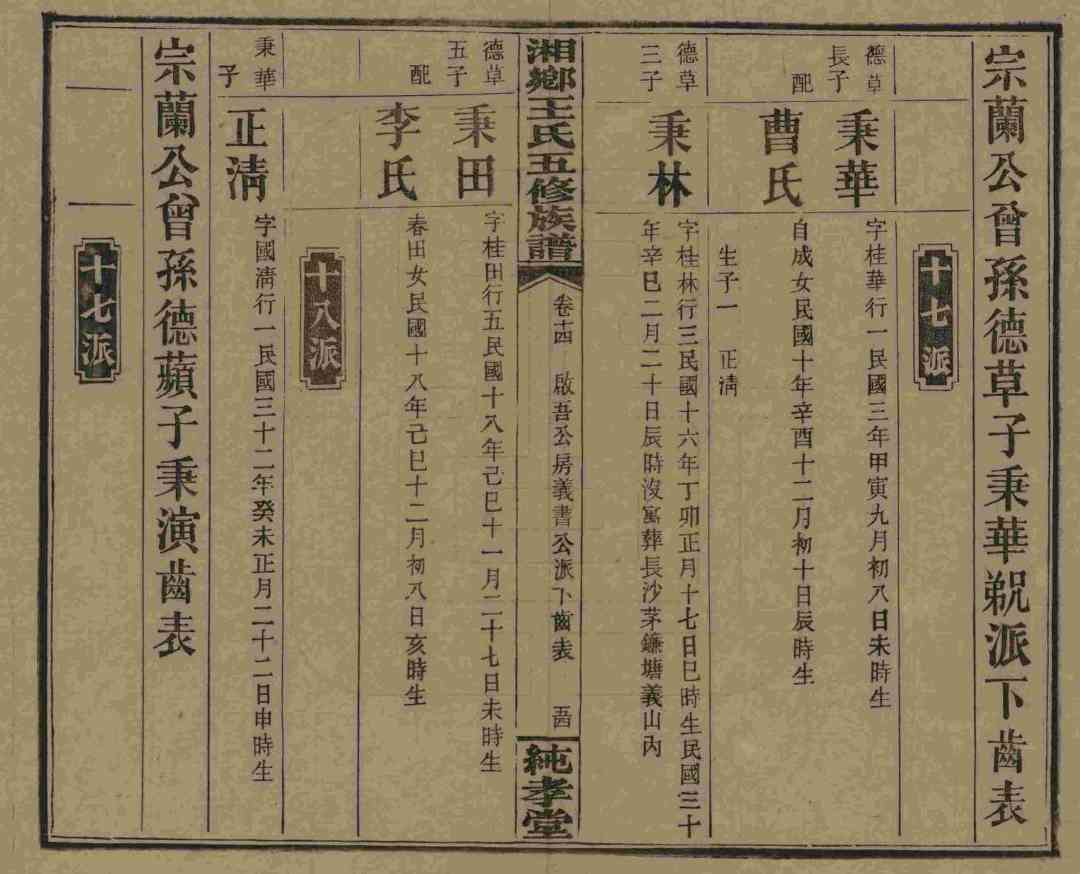 宗蘭公曾孫德草子秉華覜派下齒表
十七派
德草
長子
秉華
字桂華行一民國三年甲寅九月初八日未時生
配
曹氏
自成女民國十年辛酉十二月初十日辰時生
生子一 正淸
德草
三子
秉林
字桂林行三民國十六年丁卯正月十七日巳時生民國三十
年辛巳二月二十日辰時沒寓葬長沙茅鐮塘義山內
湘鄉王氏五修族譜
卷十四 啟吾公房義書公派下齒表 五
純孝堂
德草
五子
秉田
字桂田行五民國十八年己巳十一月二十七日未時生
配
李氏
春田女民國十八年己巳十二月初八日亥時生
十八派
秉華
子
正淸
字國淸行一民國三十二年癸未正月二十二日申時生
宗蘭公曾孫德蘋子秉演齒表
十七派